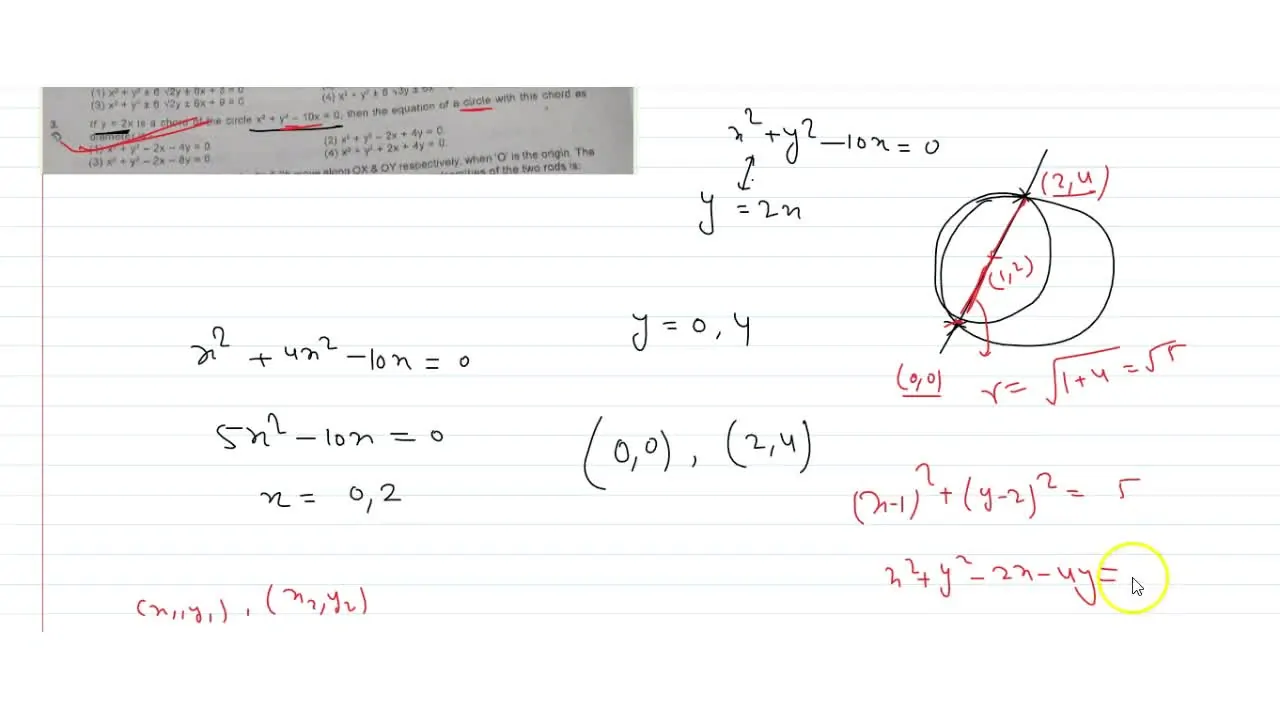 (1) x² + y² ± 6 √2y + 6x + 8 = 0
(3) x² + y² ± 6 √2y ± 6x + 9 = 0
(4) x² + y² ± 6 √3y ± 6x
3.
If y = 2x is a chord of the circle x² + y² – 10x = 0, then the equation of a circle with this chord as
diameter is
(1) x² + y² – 2x – 4y = 0
(2) x² + y² – 2x + 4y = 0.
(3) x² + y² – 2x – 8y = 0.
(4) x² + y² + 2x + 4y = 0.
move along OX & OY respectively, when 'O' is the origin. The
of the two rods is:
x² + y² – 10x = 0
y = 2x
(2,4)
(1,2)
(0,0)
r = √1+4 = √5
x² + 4x² – 10x = 0
y = 0, 4
5x² – 10x = 0
(0,0), (2,4)
x = 0,2
(x–1)² + (y–2)² = 5
x² + y² – 2x – 4y =
(x₁,y₁), (x₂,y₂)